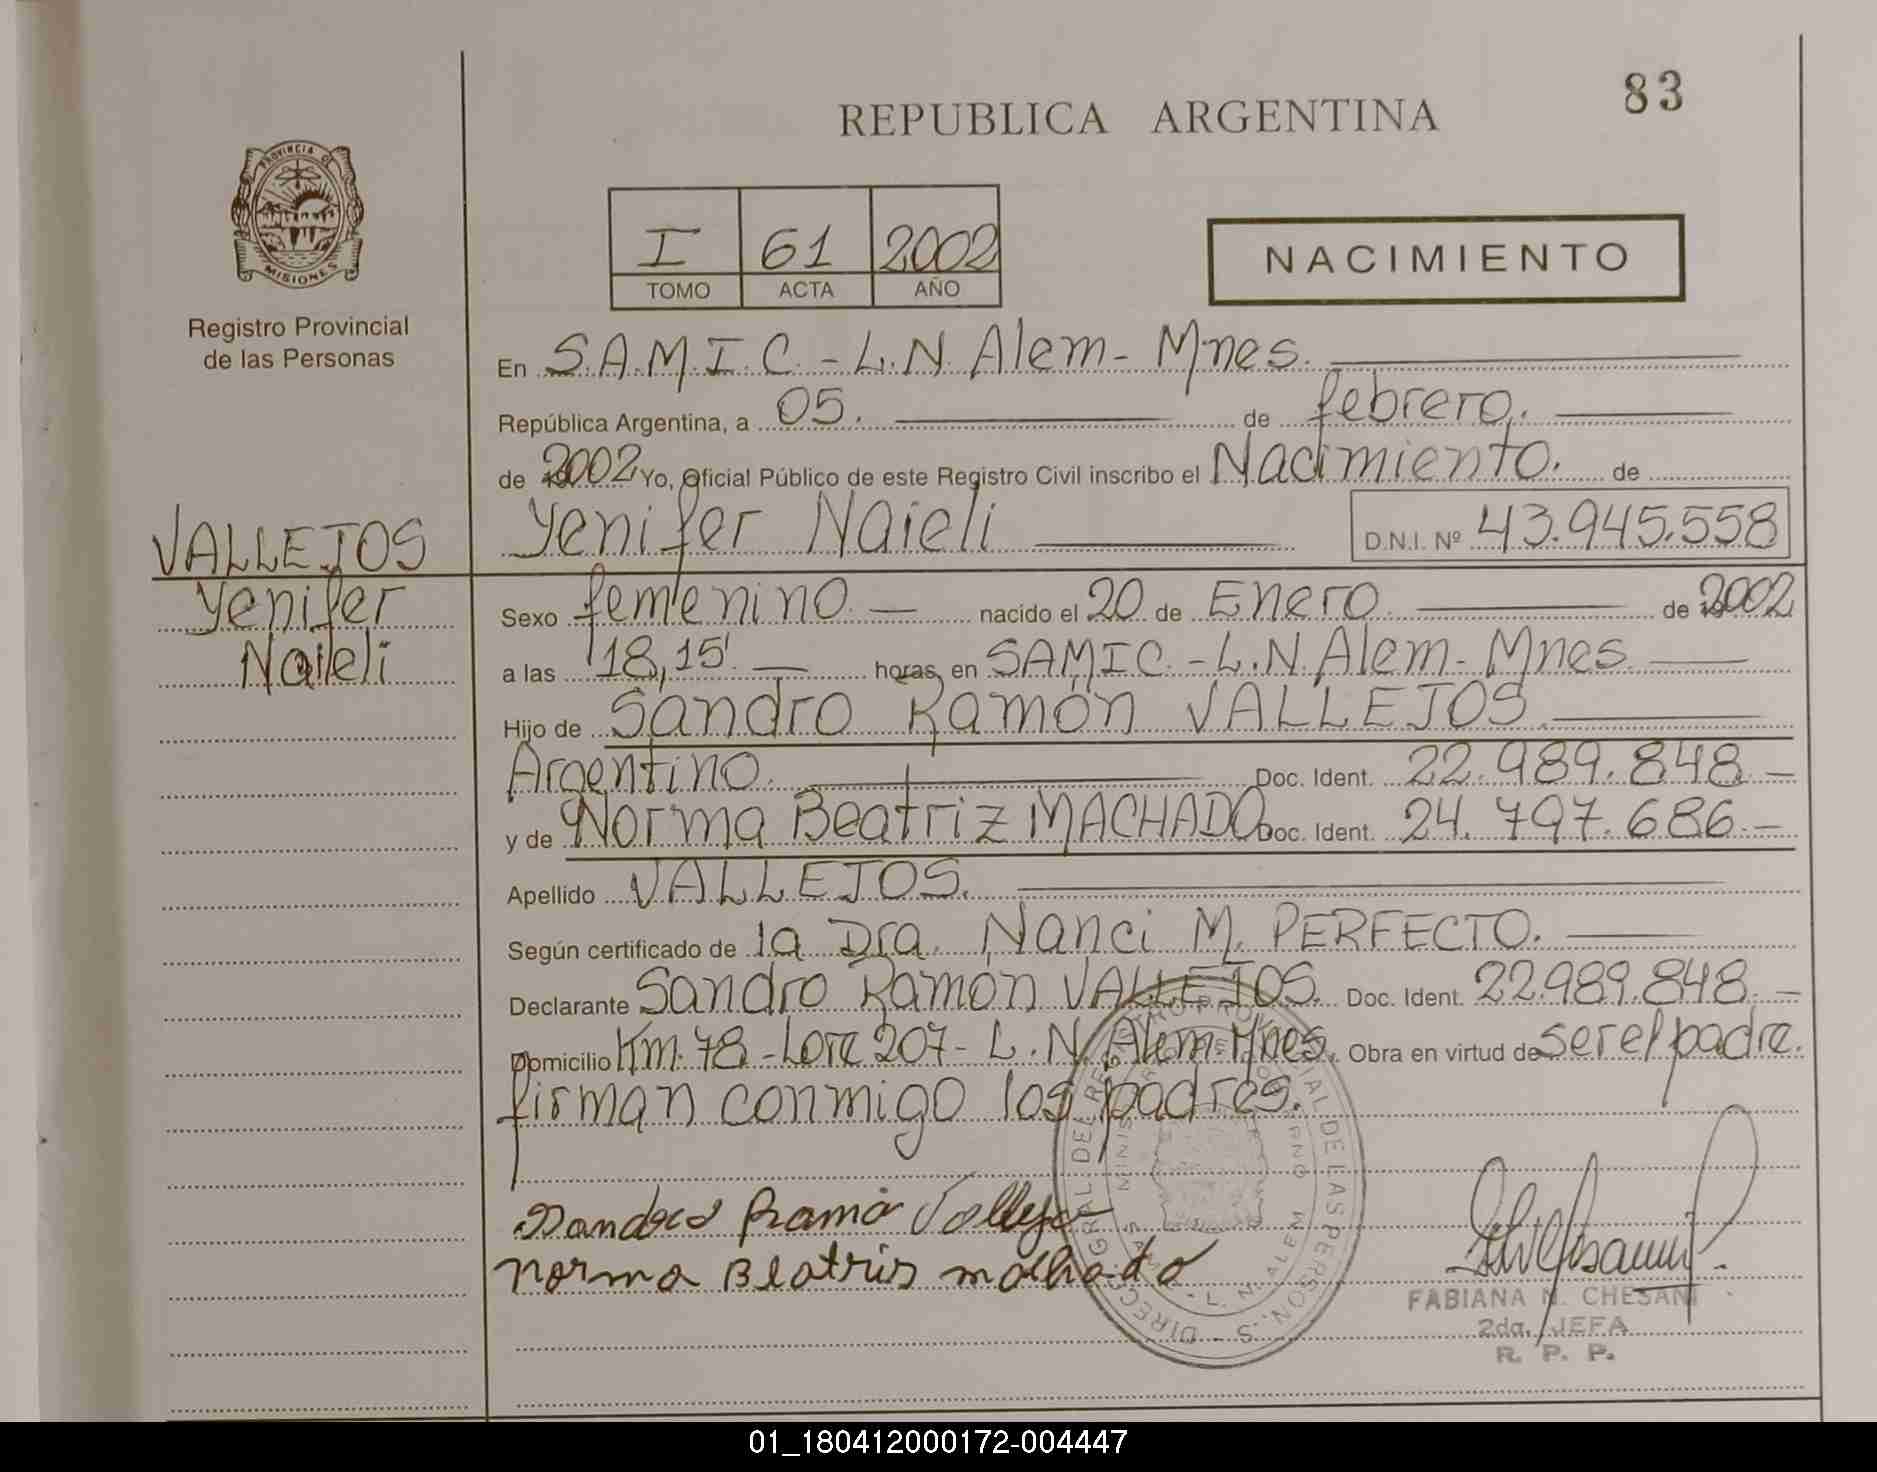 83
REPUBLICA ARGENTINA
PROVINCIA DE
MISIONES
Registro Provincial
de las Personas
I 61 2002
TOMO ACTA AÑO
NACIMIENTO
En S.A.M.I.C. - L.N. Alem - Mnes.
República Argentina, a 05. de febrero.
de 2002 Yo, Oficial Público de este Registro Civil inscribo el Nacimiento. de
Yenifer Naieli D.N.I. Nº 43.945.558
VALLEJOS
Yenifer
Naieli
Sexo femenino. nacido el 20 de Enero de 2002
a las 18,15' horas, en SAMIC. - L.N. Alem - Mnes.
Hijo de Sandro Ramón VALLEJOS.
Argentino. Doc. Ident. 22.989.848.-
y de Norma Beatriz MACHADO Doc. Ident. 24.797.686.-
Apellido VALLEJOS.
Según certificado de la Dra. Nanci M. PERFECTO.
Declarante Sandro Ramón VALLEJOS. Doc. Ident. 22.989.848.-
Domicilio Km. 78 - Lote 207 - L.N. Alem - Mnes. Obra en virtud de ser el padre.
firman conmigo los padres.
Norma Beatris machado
FABIANA N. CHESANI
2da. JEFA
R. P. P.
01_180412000172-004447